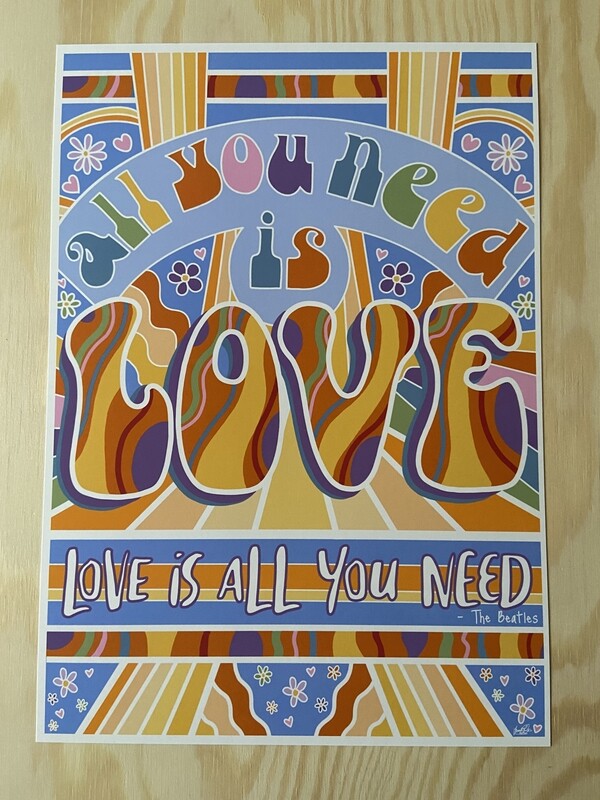 all you need
is
LOVE
LOVE iS ALL YOU NEED
- The Beatles